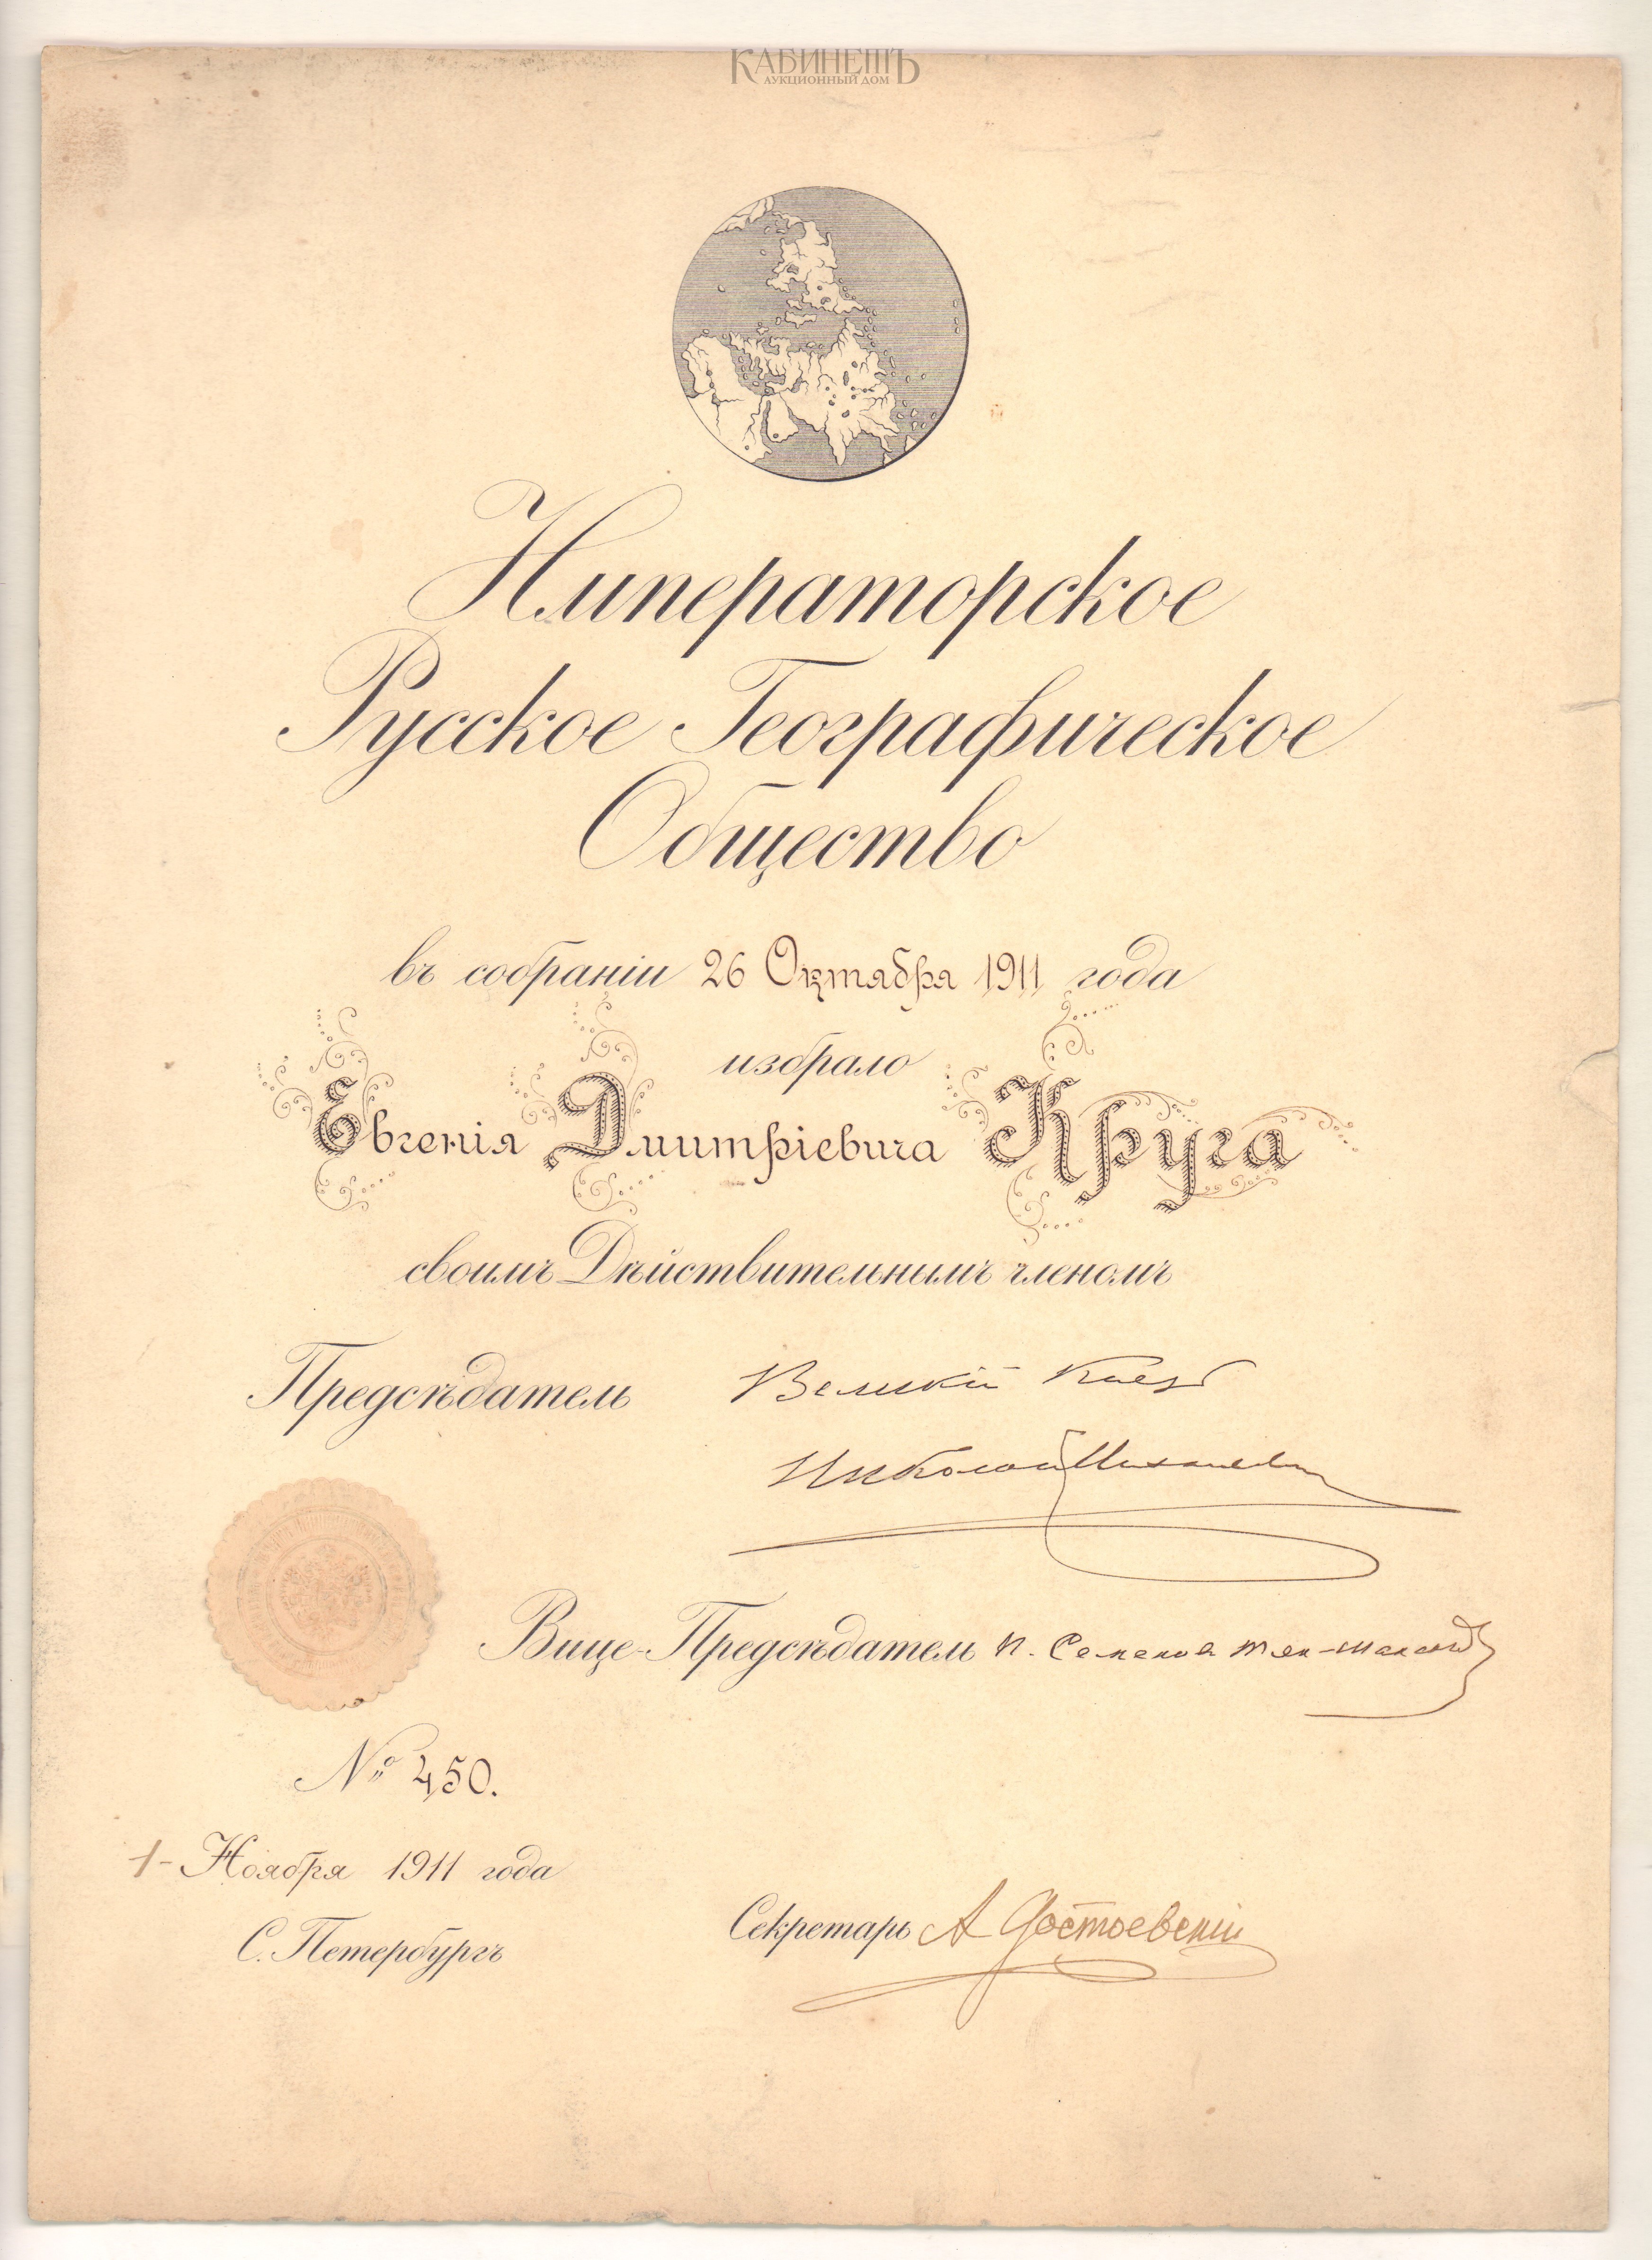 КАБИНЕТЪ
АУКЦИОННЫЙ ДОМ
Императорское
Русское Географическое
Общество
въ собраніи 26 Октября 1911 года
избрало
Евгенія Дмитріевича Круга
своимъ Дѣйствительнымъ членомъ
Предсѣдатель Великій Князь
Николай Михаиловичъ
Вице-Предсѣдатель П. Семенов Тян-Шанский
№ 450.
1 Ноября 1911 года
С. Петербургъ
Секретарь А Достоевскій